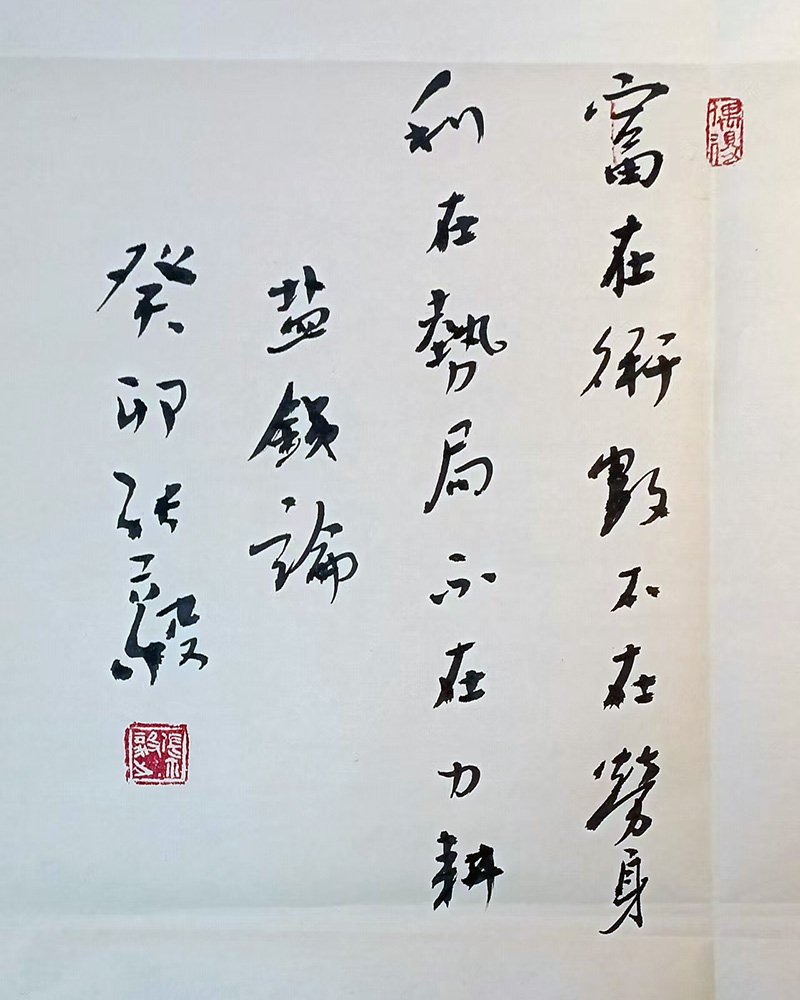 偶得
富在術數不在勞身
利在勢局不在力耕
盐銕論
癸卯张毅